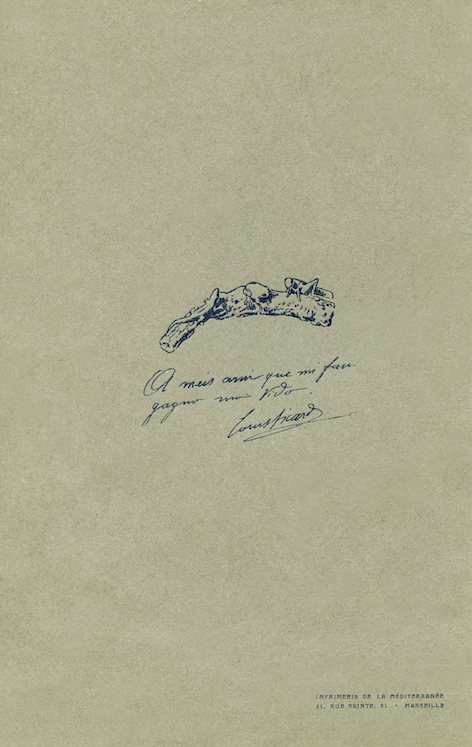 A meis ami que mi fan
gagna ma Vido.
Louis Sicard
IMPRIMERIE DE LA MÉDITERRANÉE
51, RUE SAINTE, 51 - MARSEILLE